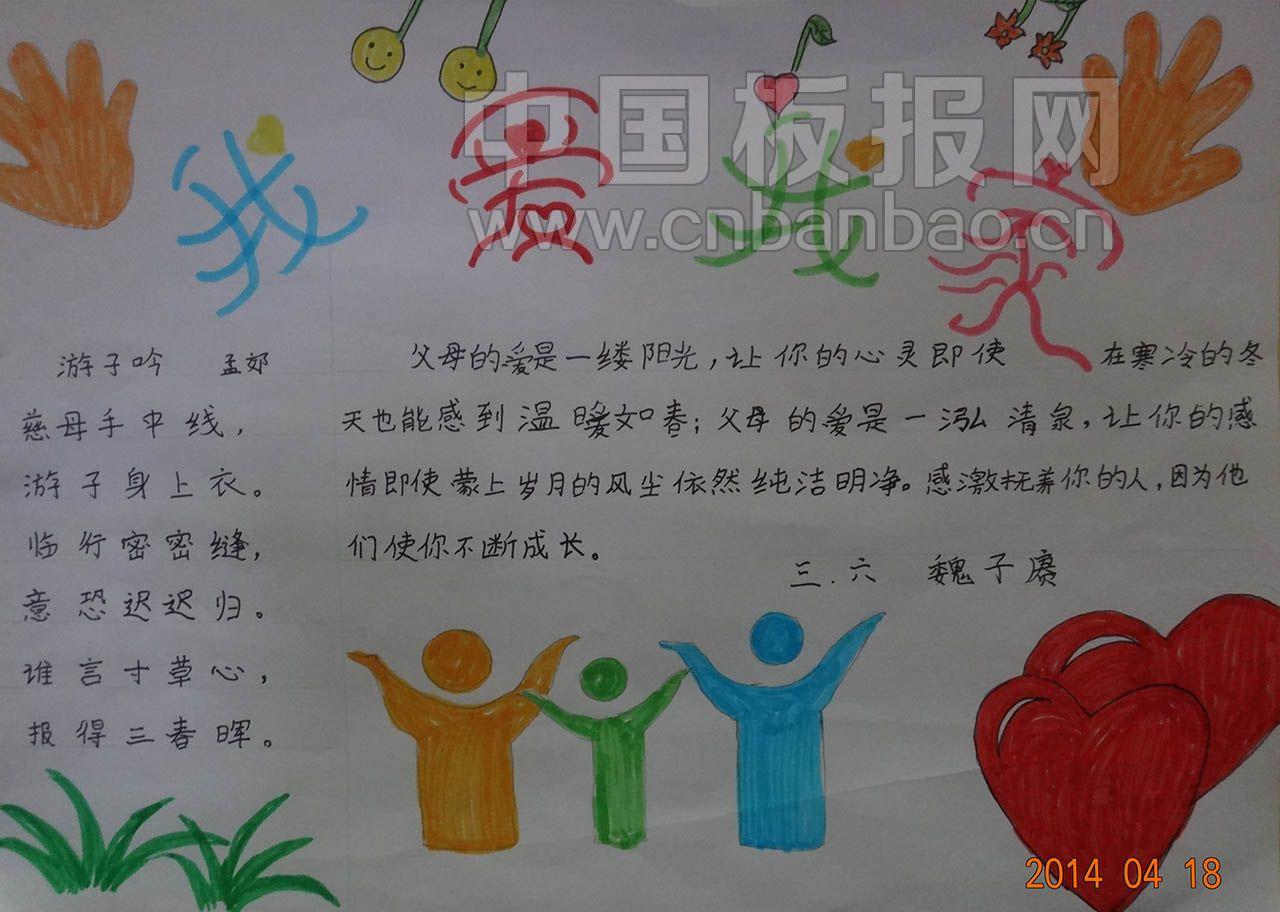 我爱我家
中国板报网
www.cnbanbao.cn
游子吟 孟郊
慈母手中线，
游子身上衣。
临行密密缝，
意恐迟迟归。
谁言寸草心，
报得三春晖。
父母的爱是一缕阳光，让你的心灵即使 在寒冷的冬
天也能感到温暖如春；父母的爱是一泓清泉，让你的感
情即使蒙上岁月的风尘依然纯洁明净。感激抚养你的人，因为他
们使你不断成长。
三.六 魏子赓
2014 04 18